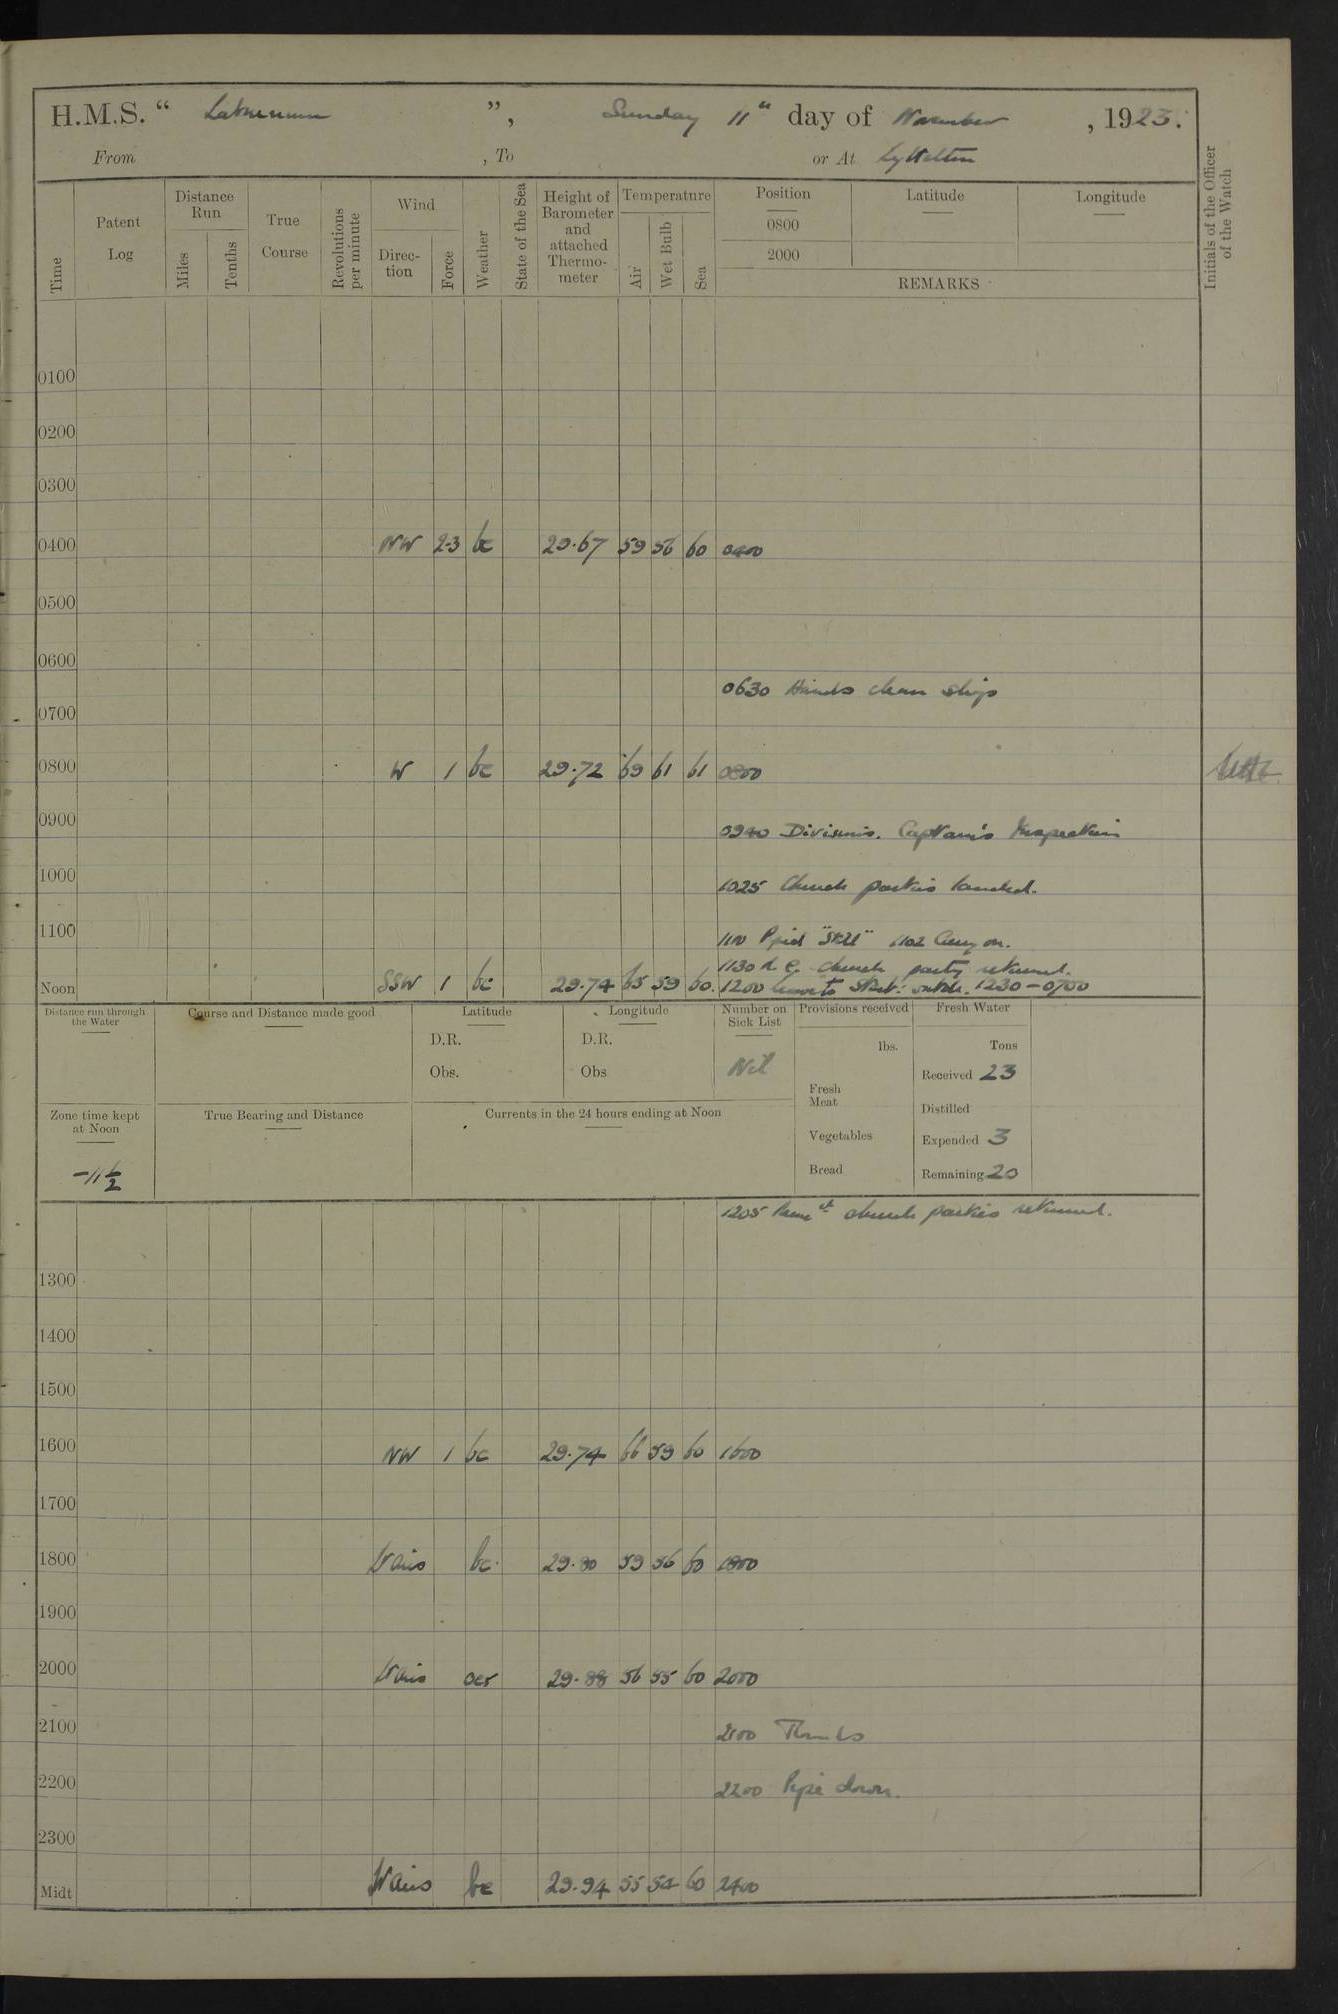 H.M.S. “ Laburnum ”, Sunday 11" day of November , 1923.
From , To or At Lyttelton
Time
Patent Log
Distance Run
Miles
Tenths
True Course
Revolutions per minute
Wind
Direction
Force
Weather
State of the Sea
Height of Barometer and attached Thermometer
Temperature
Air
Wet Bulb
Sea
Position
0800
2000
Latitude
Longitude
REMARKS
Initials of the Officer of the Watch
0100
0200
0300
0400 NW 2-3 bc 29.67 59 56 60 0400
0500
0600
0630 Hands clean ship
0700
0800 W 1 bc 29.72 69 61 61 0800
0900
0940 Divisions. Captain's Inspection
1000
1025 Church parties landed.
1100
1100 Piped "Still" 1102 Carry on.
1130 R.C. church party returned.
Noon SSW 1 bc 29.74 65 59 60. 1200 Leave to Starbd: watch. 1230-0700
Distance run through the Water
Course and Distance made good
Latitude
D.R.
Obs.
Longitude
D.R.
Obs
Number on Sick List
Nil
Provisions received
lbs.
Fresh Meat
Vegetables
Bread
Fresh Water
Tons
Received 23
Distilled
Expended 3
Remaining 20
Zone time kept at Noon
-11½
True Bearing and Distance
Currents in the 24 hours ending at Noon
1205 church parties returned.
1300
1400
1500
1600 NW 1 bc 29.74 66 59 60 1600
1700
1800 Vairs bc. 29.80 59 56 60 1800
1900
2000 Vairs ocr 29.88 56 55 60 2000
2100 2100 Rounds
2200 2200 Pipe down.
2300
Midt Vairs bc 29.94 55 54 60 2400